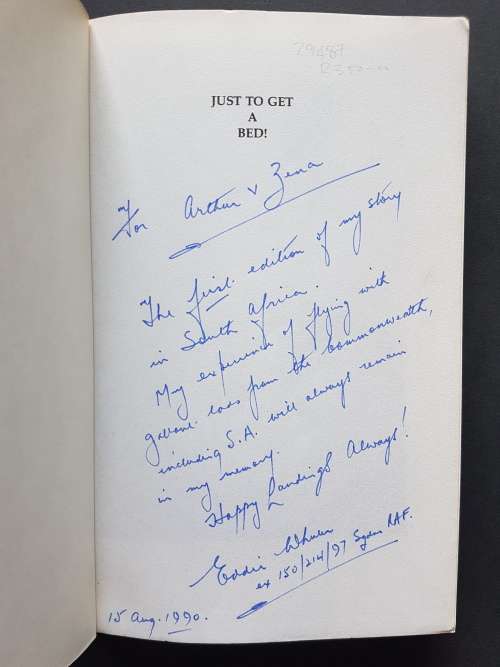 79487
R350-00
JUST TO GET
A
BED!
For Arthur & Zena
The first edition of my story
in South Africa.
My experience of flying with
gallant lads from the Commonwealth,
including S.A. will always remain
in my memory.
Happy Landings Always!
Eddie Wheeler
ex 150/214/97 Sqdns RAF.
15 Aug. 1990.